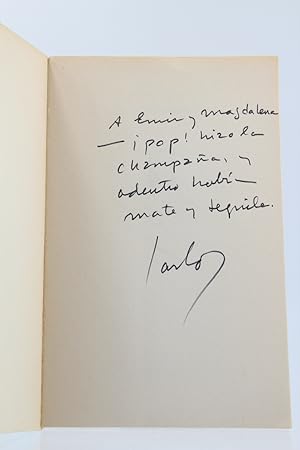 A Emir y Magdalena
— ¡pop! hizo la
champaña, y
adentro había
mate y tequila.
Carlos